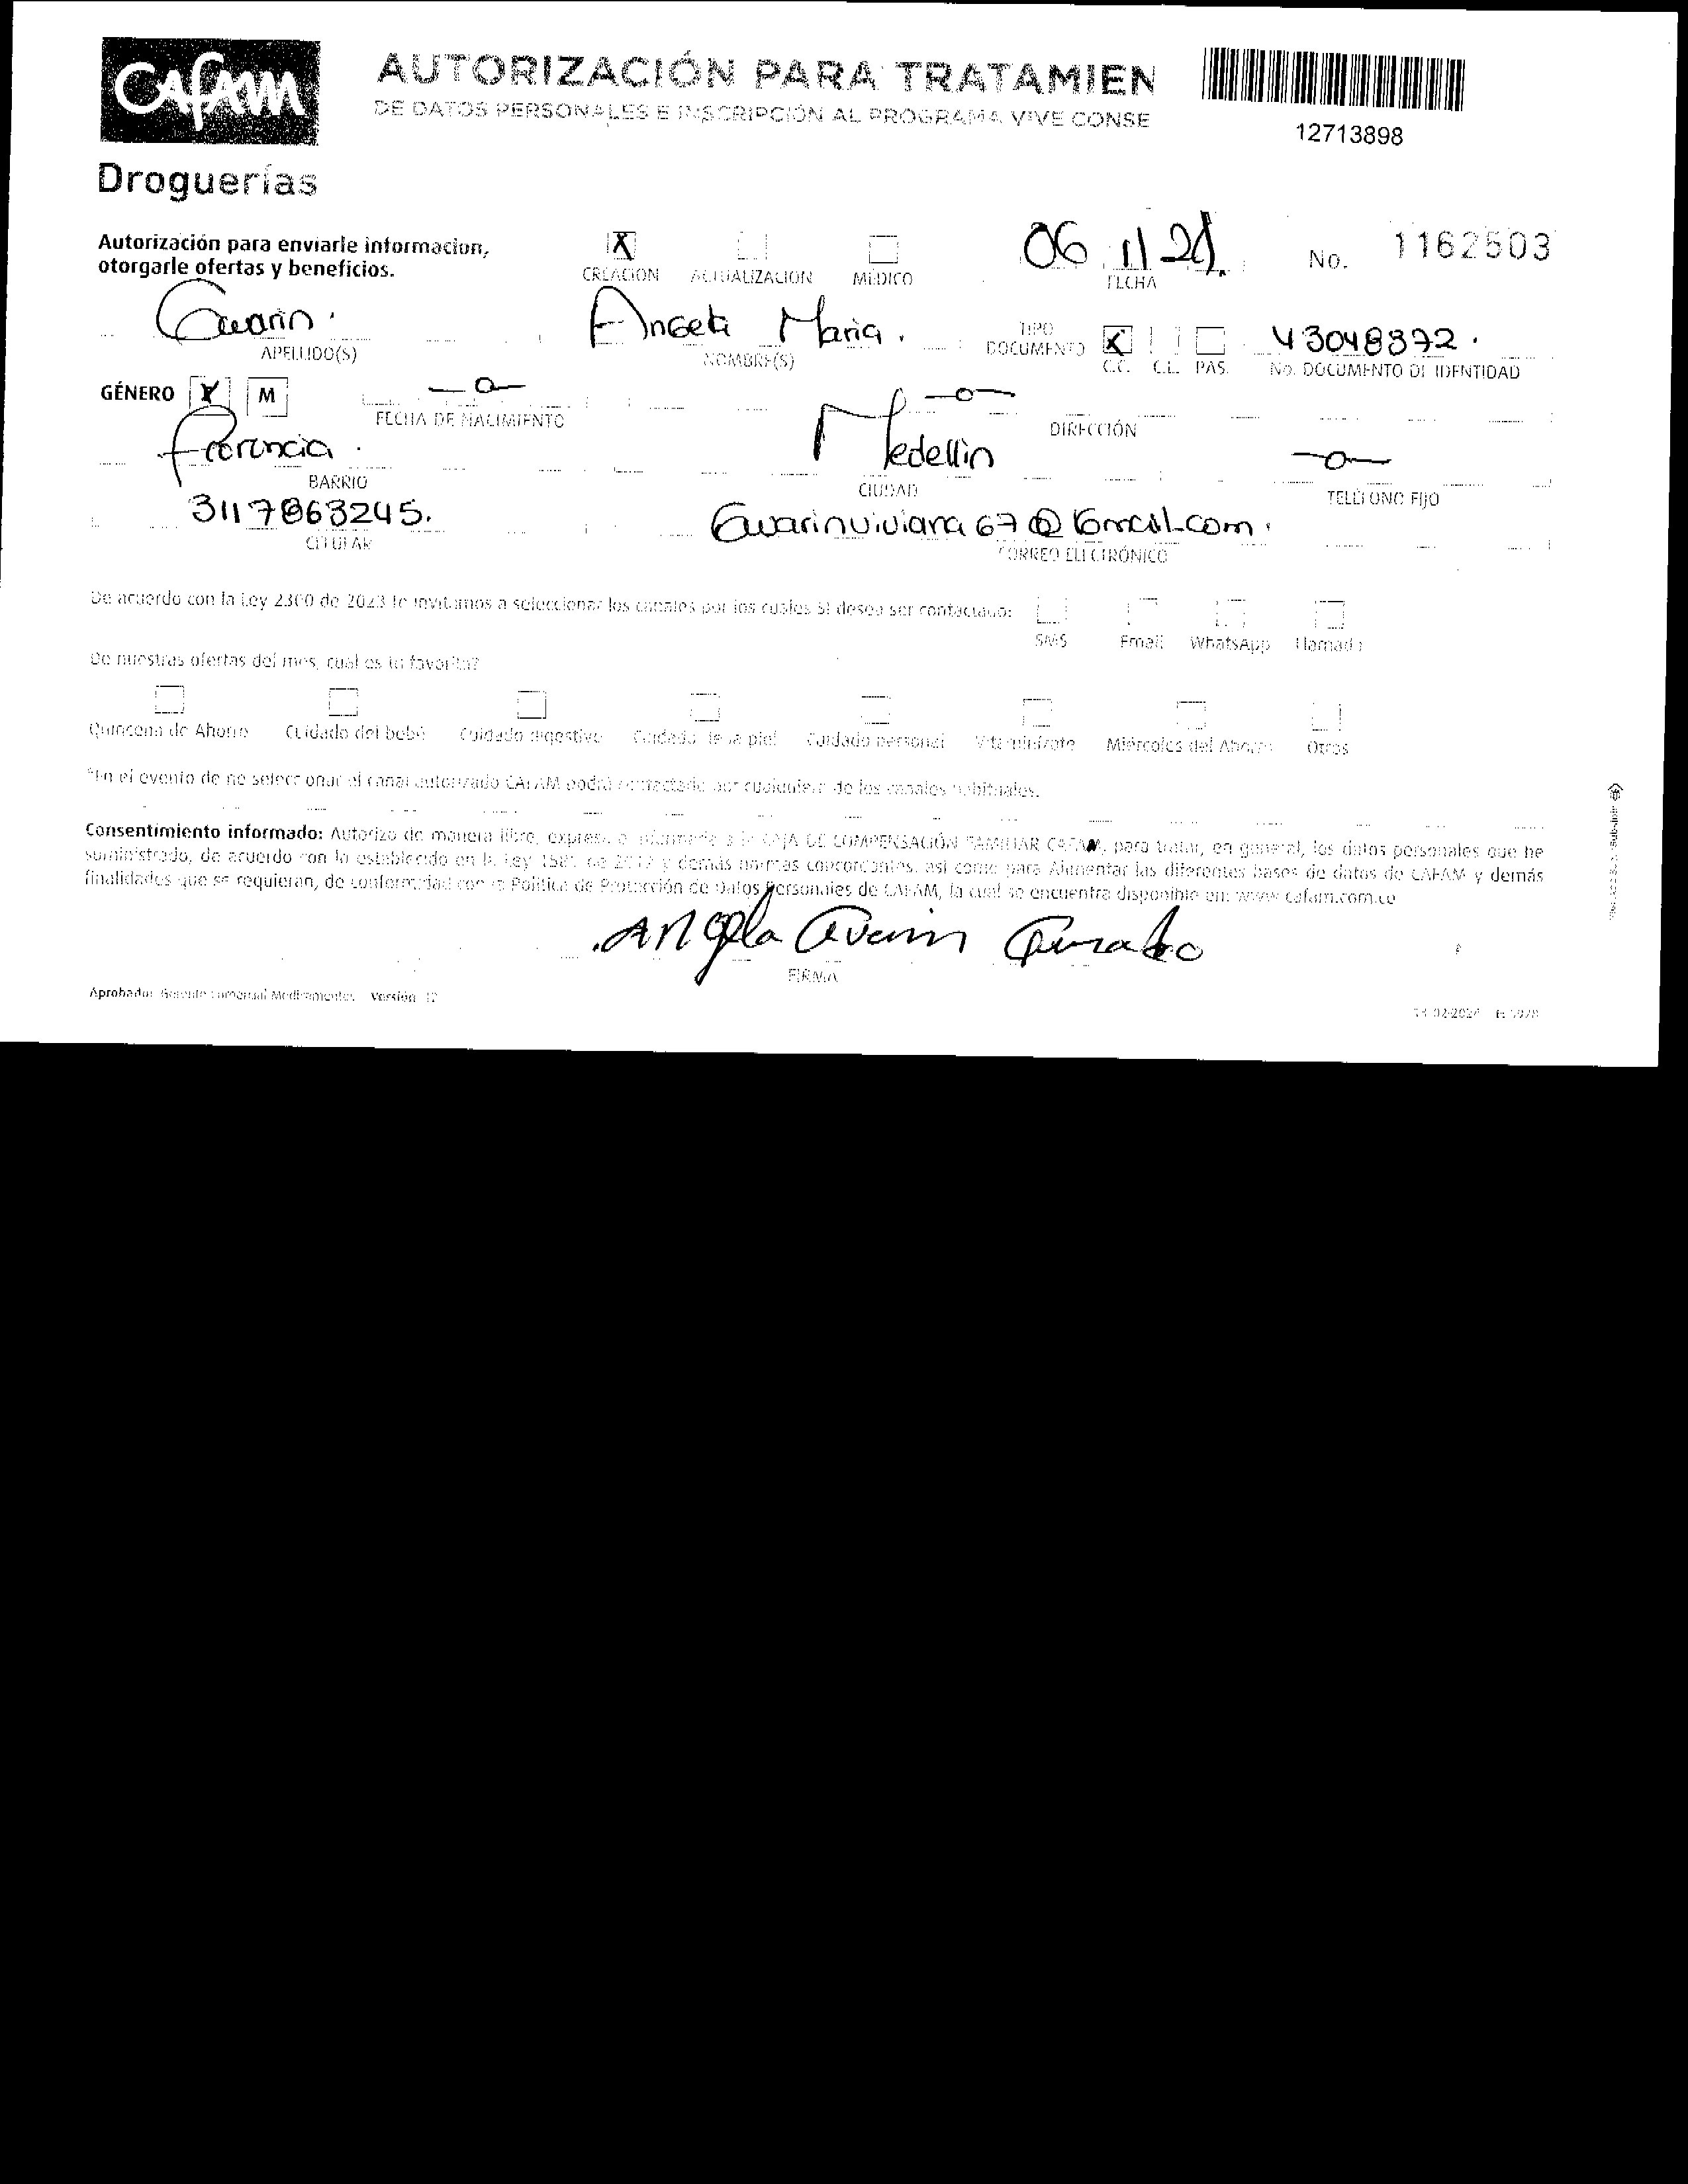 CAFAM
AUTORIZACIÓN PARA TRATAMIEN
DE DATOS PERSONALES E INSCRIPCIÓN AL PROGRAMA VIVE CONSE
12713898
Droguerías
Autorización para enviarle informacion,
otorgarle ofertas y beneficios.
X
CREACION ACTUALIZACION MÉDICO
06 11 24.
FECHA
No. 1162503
Guarin.
APELLIDO(S)
Angela Maria.
NOMBRE(S)
TIPO
DOCUMENTO
X
C.C. C.E. PAS.
No. DOCUMENTO DE IDENTIDAD
GÉNERO X M
FECHA DE NACIMIENTO
DIRECCIÓN
Florencia.
BARRIO
Medellin
CIUDAD
TELÉFONO FIJO
3117863245.
CELULAR
Guarinviviana67@Gmail.com.
CORREO ELECTRÓNICO
De acuerdo con la Ley 2300 de 2023 te invitamos a seleccionar los canales por los cuales SI desea ser contactado:
SMS Email WhatsApp Llamada
De nuestras ofertas del mes, cual es tu favorita?
Quincena de Ahorro Cuidado del bebé Cuidado digestivo Cuidado de la piel Cuidado personal Vitaminízate Miércoles del Ahorro Otros
*En el evento de no seleccionar el canal autorizado CAFAM podrá contactarle por cualquiera de los canales habituales.
Consentimiento informado: Autorizo de manera libre, expresa e informada a la CAJA DE COMPENSACIÓN FAMILIAR CAFAM, para tratar, en general, los datos personales que he
suministrado, de acuerdo con lo establecido en la Ley 1581 de 2012 y demás normas concordantes, así como para Alimentar las diferentes bases de datos de CAFAM y demás
finalidades que se requieran, de conformidad con la Política de Protección de Datos Personales de CAFAM, la cual se encuentra disponible en: www.cafam.com.co
Angela Guarin
FIRMA
Aprobador Gerente Comercial Medicamentos Versión 12